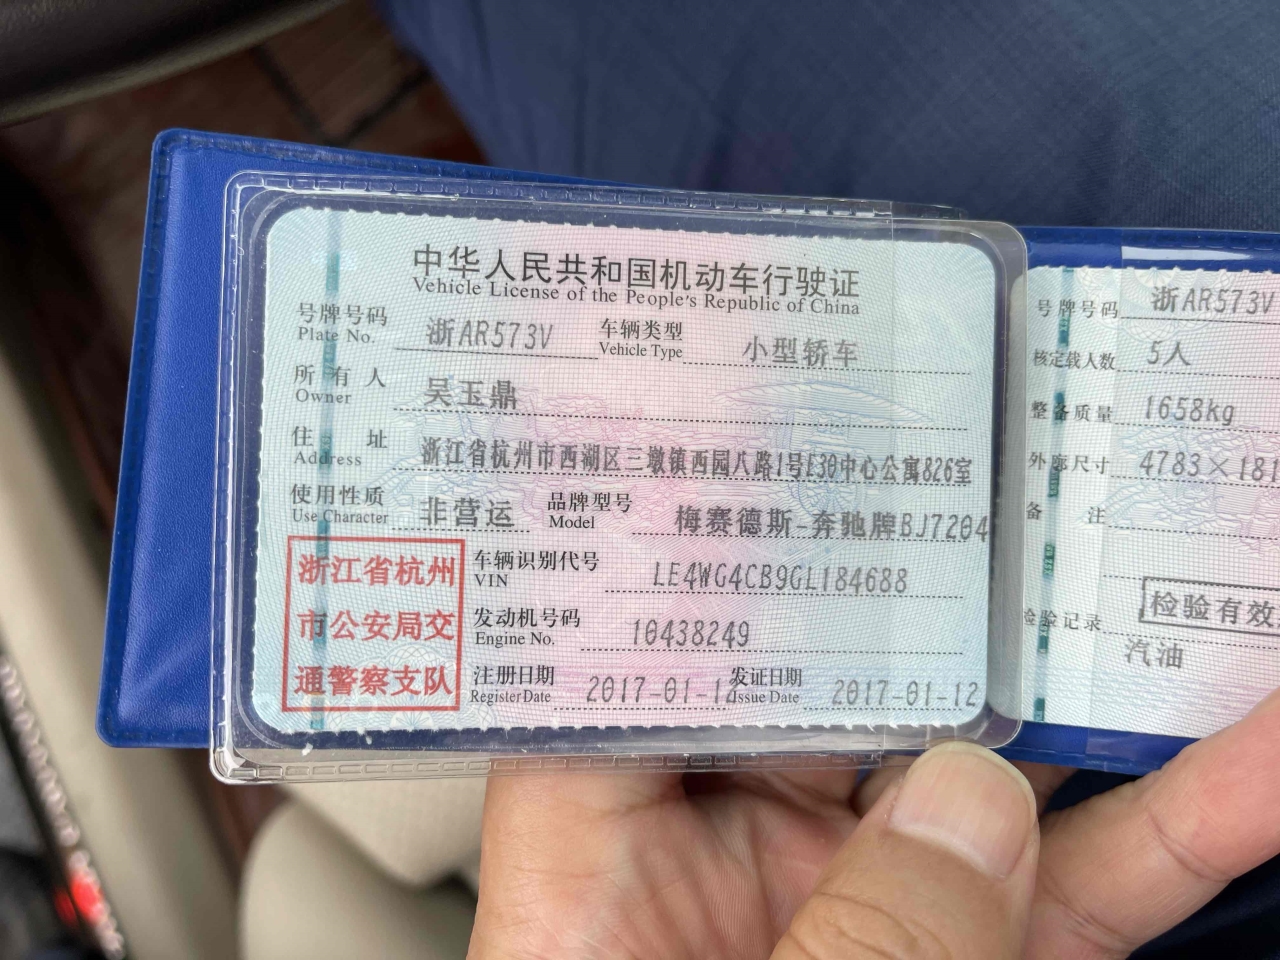 中华人民共和国机动车行驶证
Vehicle License of the People's Republic of China
号牌号码 浙AR573V 车辆类型 小型轿车
Plate No. Vehicle Type
所有人 吴玉鼎
Owner
住址 浙江省杭州市西湖区三墩镇西园八路1号E30中心公寓826室
Address
使用性质 非营运 品牌型号 梅赛德斯-奔驰牌BJ7204
Use Character Model
浙江省杭州
市公安局交
通警察支队
车辆识别代号 LE4WG4CB9GL184688
VIN
发动机号码 10438249
Engine No.
注册日期 2017-01-12 发证日期 2017-01-12
Register Date Issue Date
号牌号码 浙AR573V
核定载人数 5人
整备质量 1658kg
外廓尺寸 4783×181
备注
检验有效
检验记录
汽油